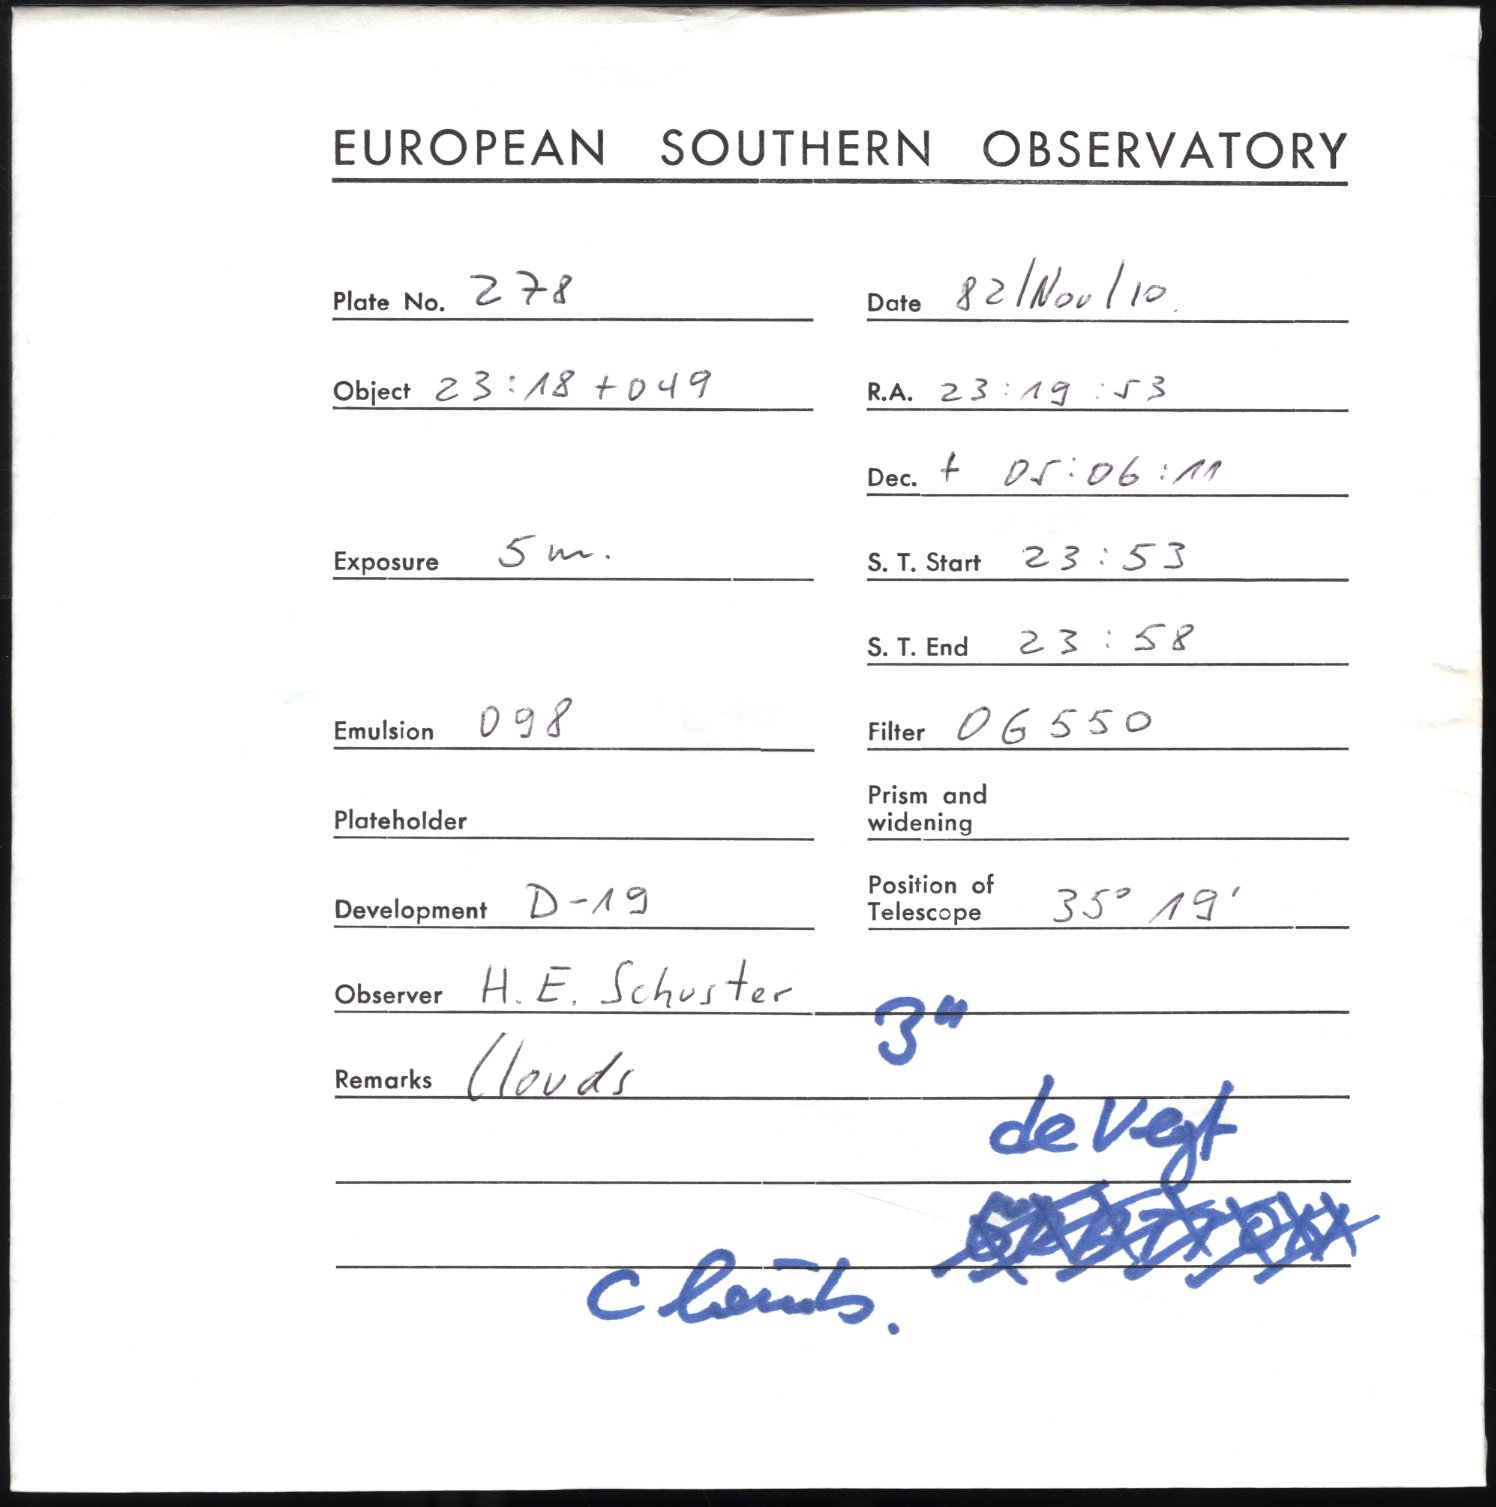 EUROPEAN SOUTHERN OBSERVATORY
Plate No. 278
Date 82/Nov/10.
Object 23:18+049
R.A. 23:19:53
Dec. + 05:06:11
Exposure 5m.
S. T. Start 23:53
S. T. End 23:58
Emulsion 098
Filter OG550
Plateholder
Prism and
widening
Development D-19
Position of
Telescope 35° 19'
Observer H. E. Schuster
3"
Remarks Clouds
de Vegt
Clouds.